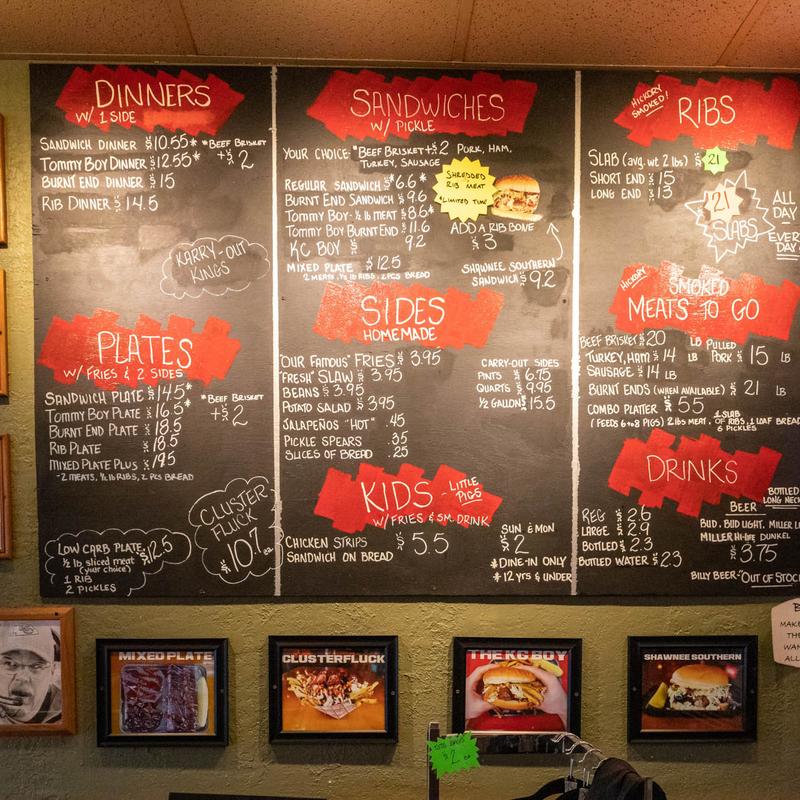 DINNERS
W/ 1 SIDE
SANDWICH DINNER $10.55* *BEEF BRISKET
TOMMY BOY DINNER $12.55* +$2
BURNT END DINNER $15
RIB DINNER $14.5
KARRY-OUT
KINGS
PLATES
W/ FRIES & 2 SIDES
SANDWICH PLATE $14.5* *BEEF BRISKET
TOMMY BOY PLATE $16.5* +$2
BURNT END PLATE $18.5
RIB PLATE $18.5
MIXED PLATE PLUS $19.5
-2 MEATS, ½ lb RIBS, 2 PCS BREAD
CLUSTER
FLUCK
$10.7 ea
LOW CARB PLATE $12.5
½ lb sliced meat
(your choice)
1 RIB
2 PICKLES
SANDWICHES
W/ PICKLE
YOUR CHOICE: *BEEF BRISKET+$2 PORK, HAM,
TURKEY, SAUSAGE
REGULAR SANDWICH $6.6*
BURNT END SANDWICH $9.6
TOMMY BOY-½ lb MEAT $8.6*
TOMMY BOY BURNT END $11.6
KC BOY $9.2
MIXED PLATE $12.5
2 MEATS, ½ lb RIBS, 2 PCS BREAD
SHREDDED
RIB MEAT
*LIMITED TIME*
ADD A RIB BONE
$3
SHAWNEE SOUTHERN
SANDWICH $9.2
SIDES
HOMEMADE
"OUR FAMOUS" FRIES $3.95
"FRESH" SLAW $3.95
BEANS $3.95
POTATO SALAD $3.95
JALAPEÑOS "HOT" .45
PICKLE SPEARS .35
SLICES OF BREAD .25
CARRY-OUT SIDES
PINTS $6.75
QUARTS $9.95
½ GALLON $15.5
KIDS
-LITTLE
PIGS
W/ FRIES & SM. DRINK
CHICKEN STRIPS $5.5
SANDWICH ON BREAD
SUN & MON
$2
*DINE-IN ONLY
*12 yrs & UNDER
HICKORY
SMOKED!
RIBS
SLAB (avg. wt 2 lbs) $21
SHORT END $15
LONG END $13
21
SLABS
ALL
DAY
EVERY
DAY
HICKORY
SMOKED
MEATS TO GO
BEEF BRISKET $20 LB
TURKEY, HAM $14 LB
SAUSAGE $14 LB
PULLED
PORK $15 LB
BURNT ENDS (WHEN AVAILABLE) $21 LB
COMBO PLATTER $55
(FEEDS 6 to 8 PIGS) 2 lbs MEAT, 1 SLAB OF RIBS, 1 LOAF BREAD
6 PICKLES
DRINKS
REG $2.6
LARGE $2.9
BOTTLED $2.3
BOTTLED WATER $2.3
BOTTLED
LONG NECK
BEER
BUD, BUD LIGHT, MILLER L
MILLER HI-LIFE DUNKEL
$3.75
BILLY BEER-"OUT OF STOC
MIXED PLATE
CLUSTERFLUCK
THE KC BOY
SHAWNEE SOUTHERN
$2
MAKE